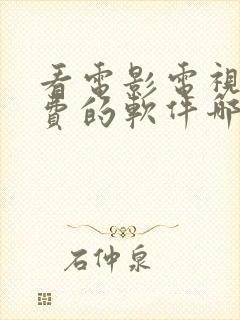 看電影電視
費的軟件哪
石仲泉